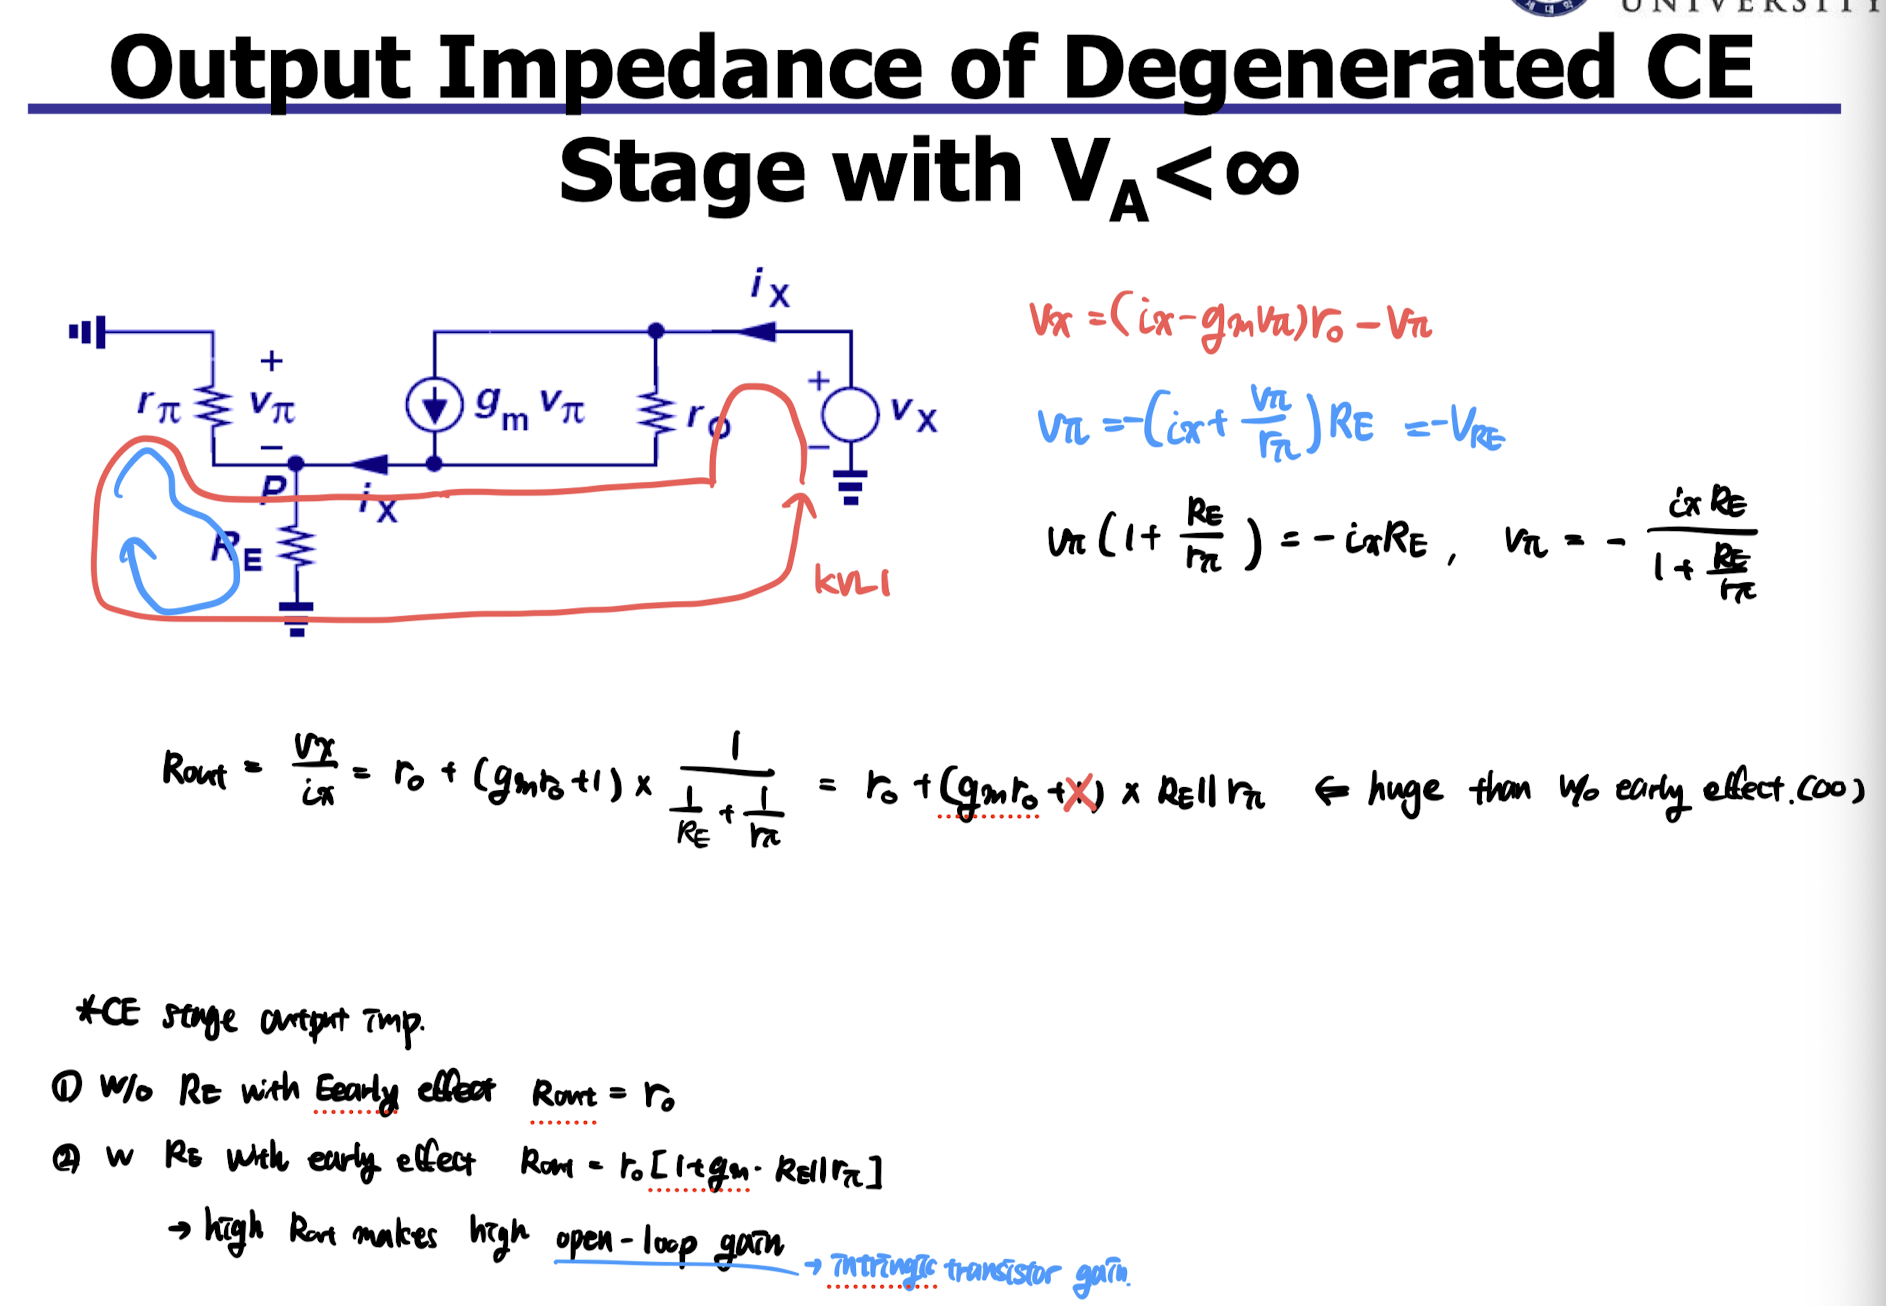 UNIVERSITY
Output Impedance of Degenerated CE
Stage with V_A<∞
i_X
+
r_π v_π
−
g_m v_π
r_O
+
v_X
−
P
i_X
R_E
KVL1
Vx = (ix - gmVπ)ro - Vπ
Vπ = -(ix + Vπ/rπ) RE = -V_RE
Vπ (1 + RE/rπ) = - ixRE , Vπ = - ix RE / (1 + RE/rπ)
Rout = Vx/ix = ro + (gmro +1) x 1/(1/RE + 1/rπ) = ro + (gmro + 1) x RE||rπ ⇐ huge than w/o early effect. (∞)
*CE stage output imp.
① w/o RE with Eearly effect Rout = ro
② w RE with early effect Rout = ro [1+gm· RE||rπ]
→ high Rout makes high open-loop gain → intringic transistor gain.